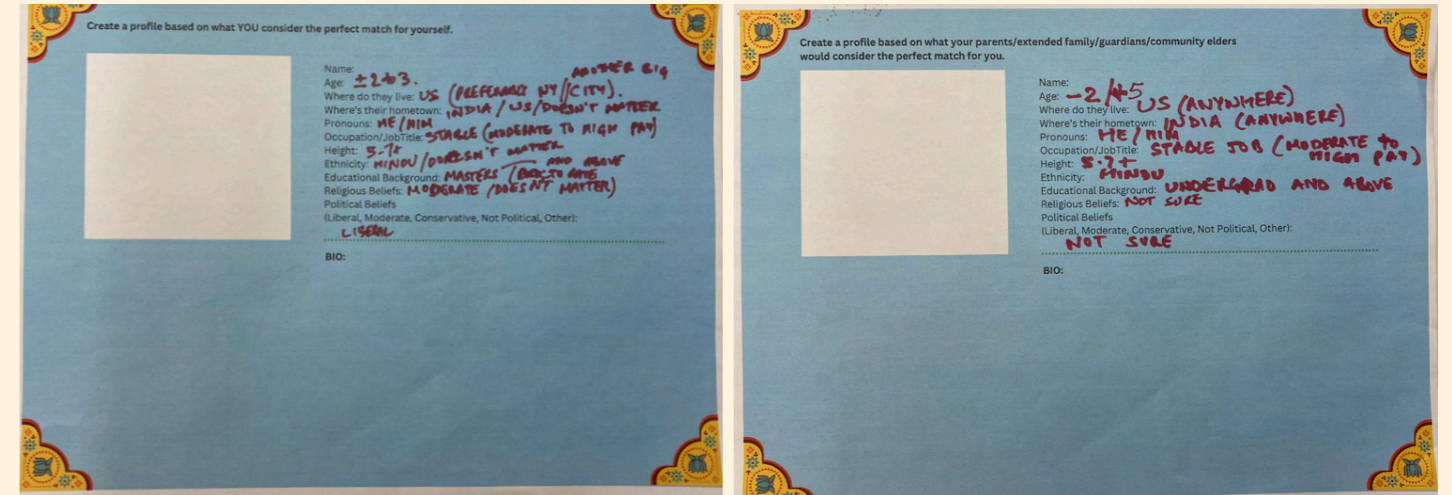 Create a profile based on what YOU consider the perfect match for yourself.
Name:
Age: ±2to3.
ANOTHER BIG
Where do they live: US (PREFERABLY NY//CITY).
Where's their hometown: INDIA / US/DOESN'T MATTER
Pronouns: HE/HIM
Occupation/JobTitle: STABLE (MODERATE TO HIGH PAY)
Height: 5-7+
Ethnicity: HINDU /DOESN'T MATTER
Educational Background: MASTERS AND ABOVE
Religious Beliefs: MODERATE (DOESN'T MATTER)
Political Beliefs
(Liberal, Moderate, Conservative, Not Political, Other):
LIBERAL
BIO:
Create a profile based on what your parents/extended family/guardians/community elders
would consider the perfect match for you.
Name:
Age: -2/+5
Where do they live: US (ANYWHERE)
Where's their hometown: INDIA (ANYWHERE)
Pronouns: HE/HIM
Occupation/JobTitle: STABLE JOB (MODERATE TO
HIGH PAY)
Height: 5-7+
Ethnicity: HINDU
Educational Background: UNDERGRAD AND ABOVE
Religious Beliefs: NOT SURE
Political Beliefs
(Liberal, Moderate, Conservative, Not Political, Other):
NOT SURE
BIO: